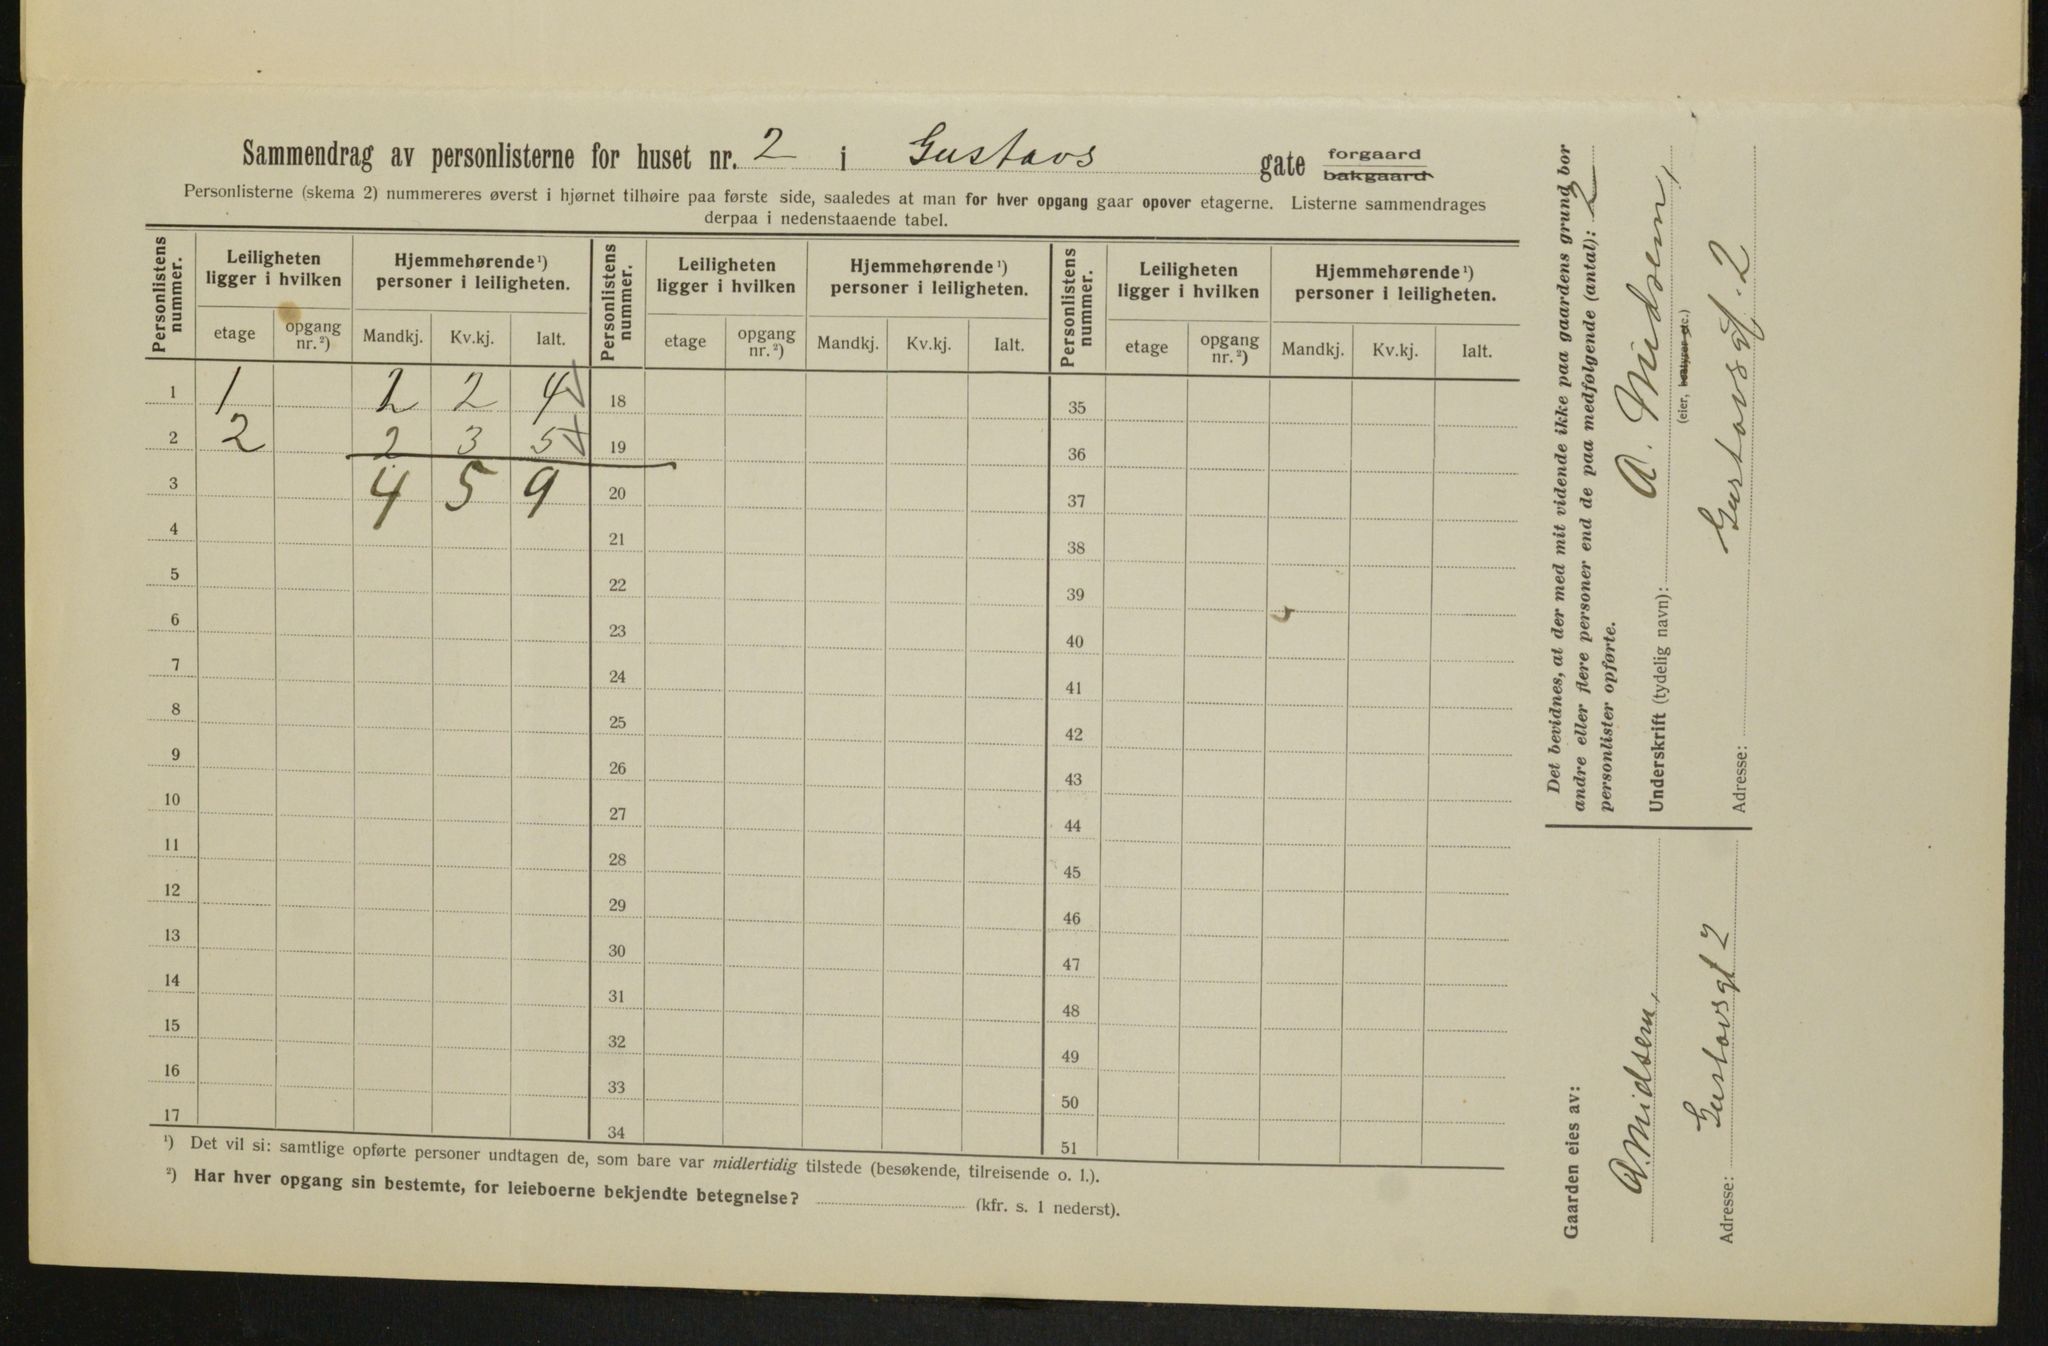 Sammendrag av personlisterne for huset nr. 2 i Gustavs gate forgaard bakgaard
Personlisterne (skema 2) nummereres øverst i hjørnet tilhøire paa første side, saaledes at man for hver opgang gaar opover etagerne. Listerne sammendrages
derpaa i nedenstaaende tabel.
Personlistens nummer. Leiligheten ligger i hvilken Hjemmehørende ¹) personer i leiligheten. Personlistens nummer. Leiligheten ligger i hvilken Hjemmehørende ¹) personer i leiligheten. Personlistens nummer. Leiligheten ligger i hvilken Hjemmehørende ¹) personer i leiligheten.
etage opgang nr. ²) Mandkj. Kv.kj. Ialt. etage opgang nr. ²) Mandkj. Kv.kj. Ialt. etage opgang nr. ²) Mandkj. Kv.kj. Ialt.
1 1 2 2 4 18 35
2 2 2 3 5 19 36
3 4 5 9 20 37
4 21 38
5 22 39
6 23 40
7 24 41
8 25 42
9 26 43
10 27 44
11 28 45
12 29 46
13 30 47
14 31 48
15 32 49
16 33 50
17 34 51
¹) Det vil si: samtlige opførte personer undtagen de, som bare var midlertidig tilstede (besøkende, tilreisende o. l.).
²) Har hver opgang sin bestemte, for leieboerne bekjendte betegnelse? (kfr. s. 1 nederst).
Det bevidnes, at der med mit vidende ikke paa gaardens grund bor
andre eller flere personer end de paa medfølgende (antal): 2
personlister opførte.
Underskrift (tydelig navn): A. Midsem,
(eier, bestyrer etc.)
Adresse: Gustavsgt. 2
Gaarden eies av:
A. Midsem,
Adresse: Gustavsgt 2